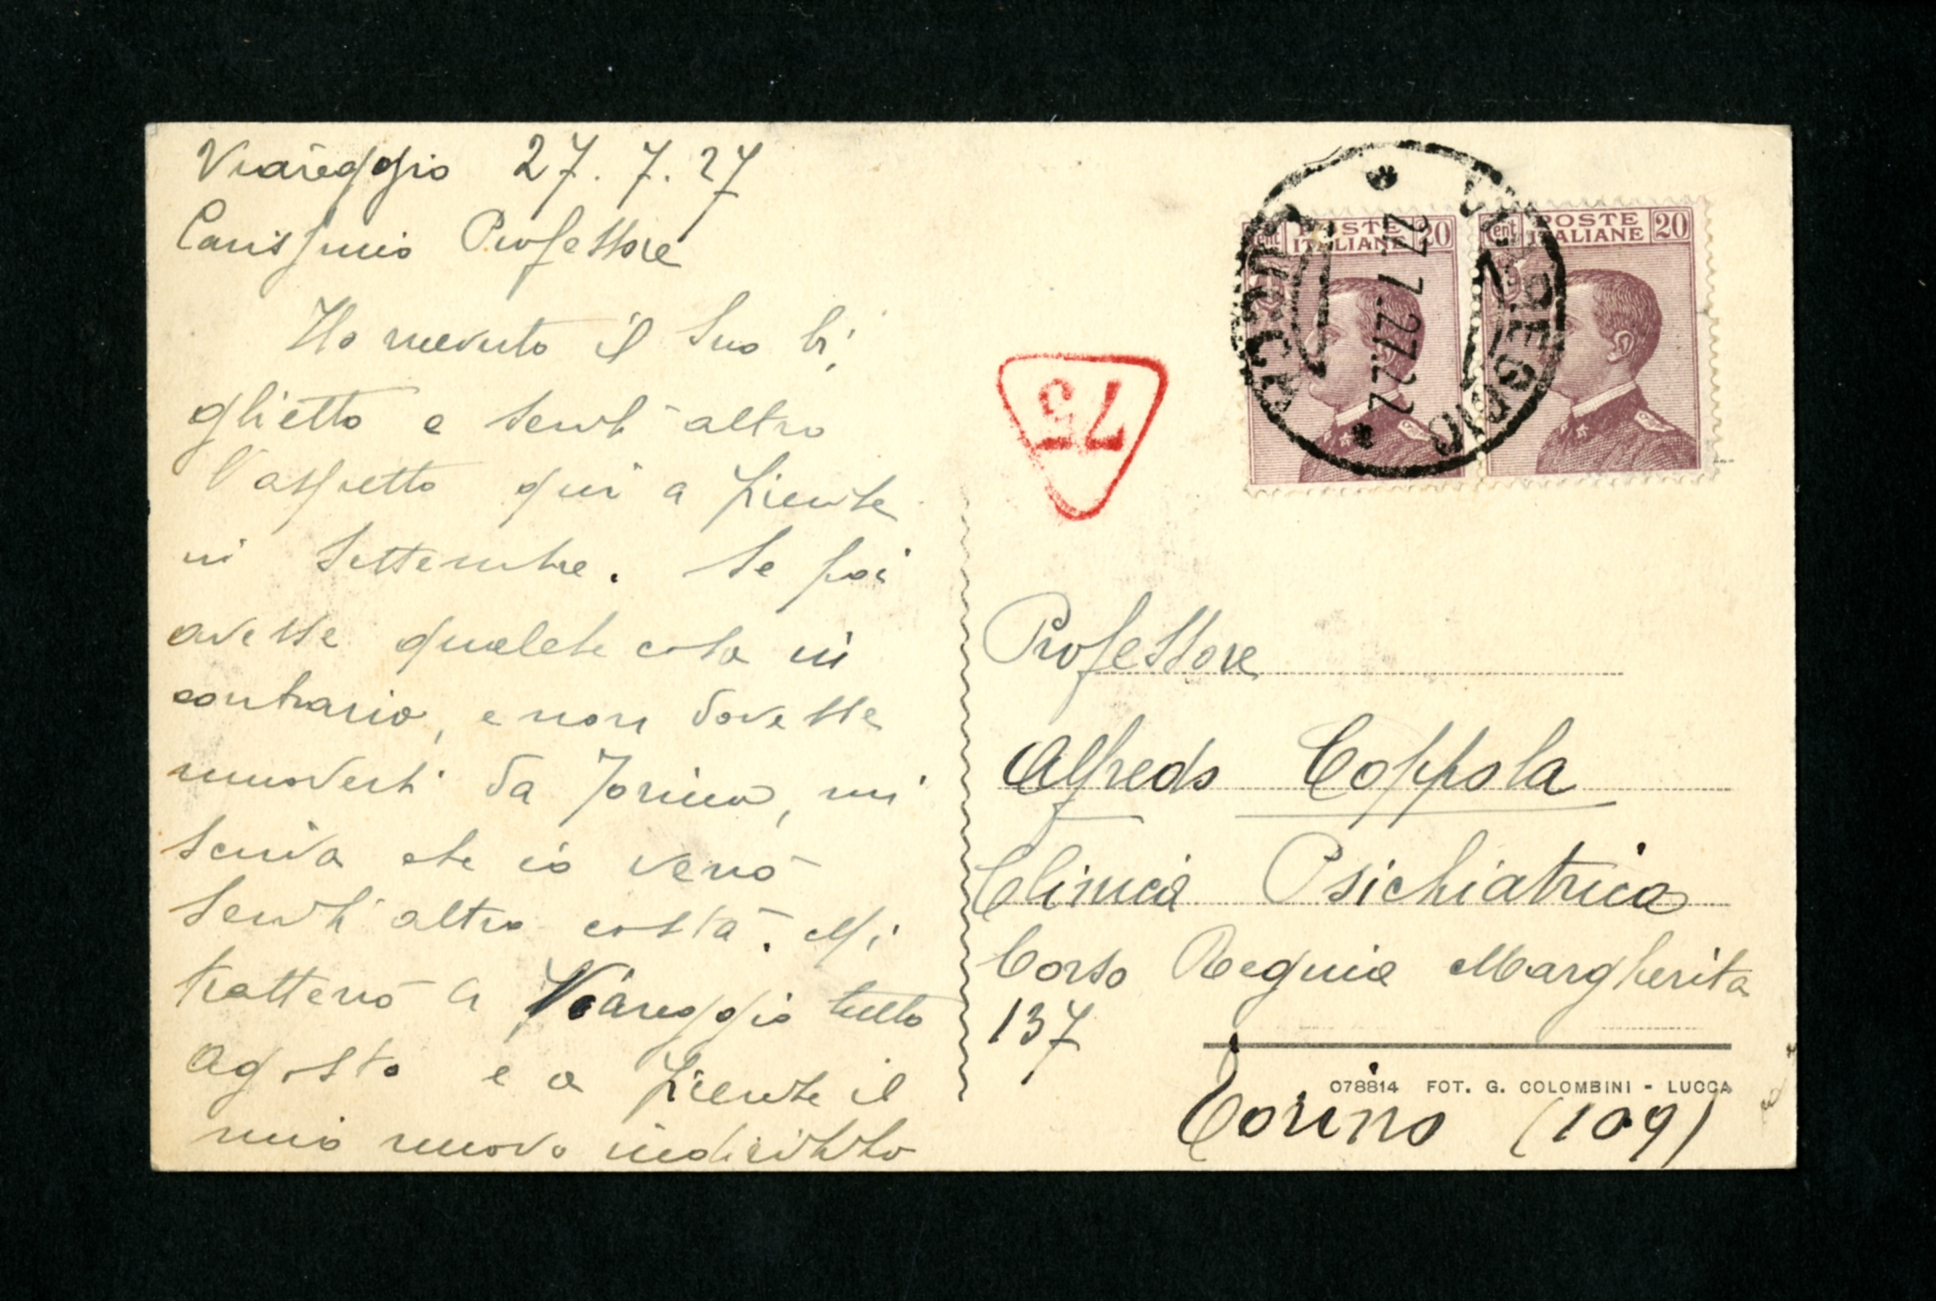 Viareggio 27.7.27
Carissimo Professore
Ho ricevuto il Suo bi,
glietto e senz'altro
l'aspetto qui a Firenze
in Settembre. Se poi
avesse qualche cosa in
contrario, e non dovesse
muoversi da Torino, mi
scriva che io verrò
senz'altro costà. Mi
tratterrò a Viareggio tutto
Agosto e a Firenze il
mio nuovo indirizzo
POSTE ITALIANE 20
Cent POSTE ITALIANE 20
VIAREGGIO
27.7.27.22
LUCCA
75
Professore
Alfredo Coppola
Clinica Psichiatrica
Corso Regina Margherita
137
078814 FOT. G. COLOMBINI - LUCCA
Torino (109)